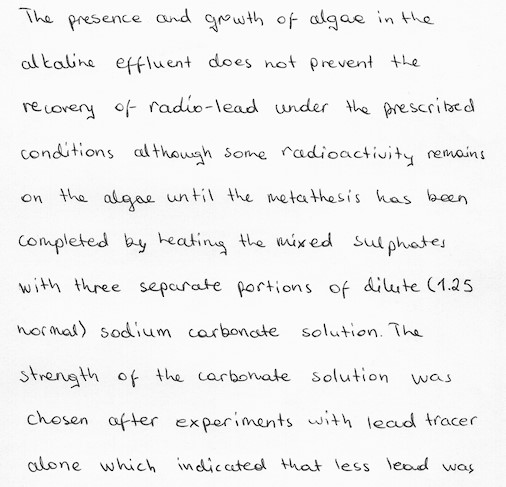 The presence and growth of algae in the
alkaline effluent does not prevent the
recovery of radio-lead under the prescribed
conditions although some radioactivity remains
on the algae until the metathesis has been
completed by heating the mixed sulphates
with three separate portions of dilute (1.25
normal) sodium carbonate solution. The
strength of the carbonate solution was
chosen after experiments with lead tracer
alone which indicated that less lead was